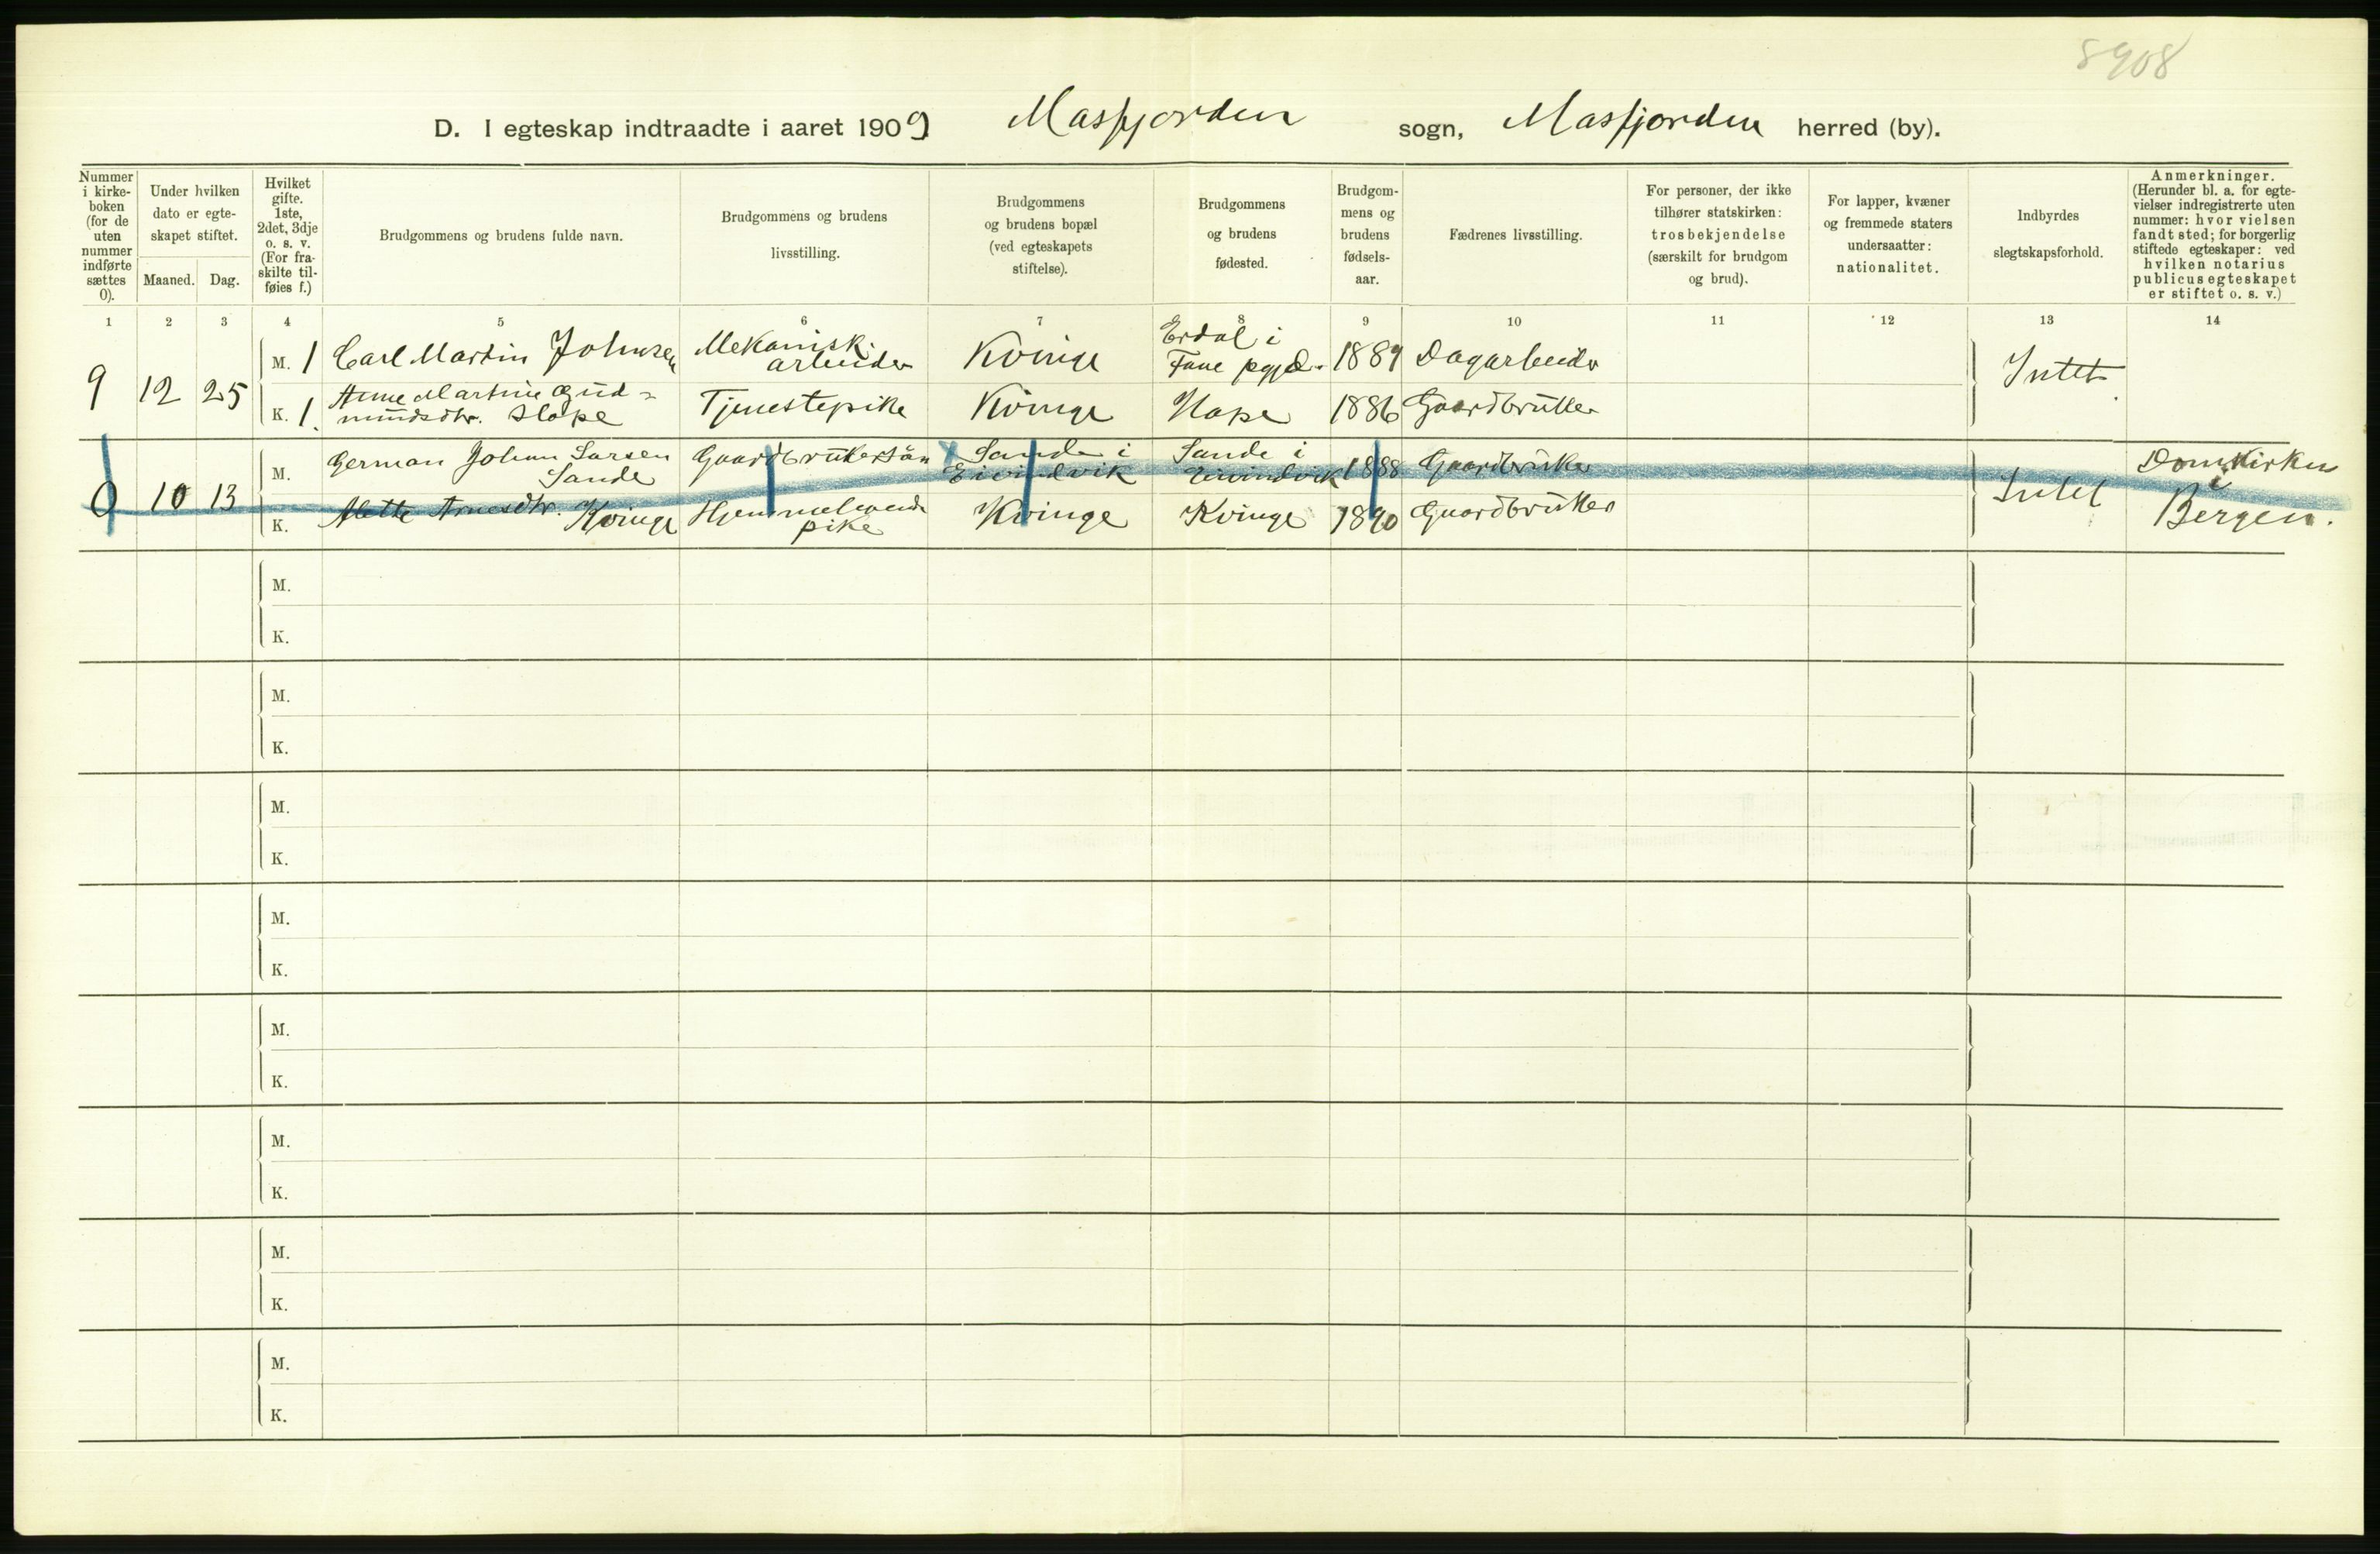 5908
D. I egteskap indtraadte i aaret 1909 Masfjorden sogn, Masfjorden herred (by).
Nummer
i kirke-
boken
(for de
uten
nummer
indførte
sættes
0).
Under hvilken
dato er egte-
skapet stiftet.
Maaned.
Dag.
Hvilket
gifte.
1ste,
2det, 3dje
o. s. v.
(For fra-
skilte til-
føies f.)
Brudgommens og brudens fulde navn.
Brudgommens og brudens
livsstilling.
Brudgommens
og brudens bopæl
(ved egteskapets
stiftelse).
Brudgommens
og brudens
fødested.
Brudgom-
mens og
brudens
fødsels-
aar.
Fædrenes livsstilling.
For personer, der ikke
tilhører statskirken:
trosbekjendelse
(særskilt for brudgom
og brud).
For lapper, kvæner
og fremmede staters
undersaatter:
nationalitet.
Indbyrdes
slegtskapsforhold.
Anmerkninger.
(Herunder bl. a. for egte-
vielser indregistrerte uten
nummer: hvor vielsen
fandt sted; for borgerlig
stiftede egteskaper: ved
hvilken notarius
publicus egteskapet
er stiftet o. s. v.)
1 2 3 4 5 6 7 8 9 10 11 12 13 14
9 12 25
M. 1 Carl Martin Johnsen
Mekanisk
arbeider
Kvinge
Erdal i
Fane pgjd.
1889 Dagarbeider
Intet
K. 1. Anne Martine Gud-
mundsdtr. Hope
Tjenestepike Kvinge Hope 1886 Gaardbruker
0 10 13
M. German Johan Larsen
Sande
Gaardbrukersøn
Sande i
Eivindvik
Sande i
Eivindvik
1888 Gaardbruker
Intet
Domkirken
i
Bergen.
K. Mette Arnesdtr. Kvinge
Hjemmeleverende
pike
Kvinge Kvinge 1890 Gaardbruker
M.
K.
M.
K.
M.
K.
M.
K.
M.
K.
M.
K.
M.
K.
M.
K.